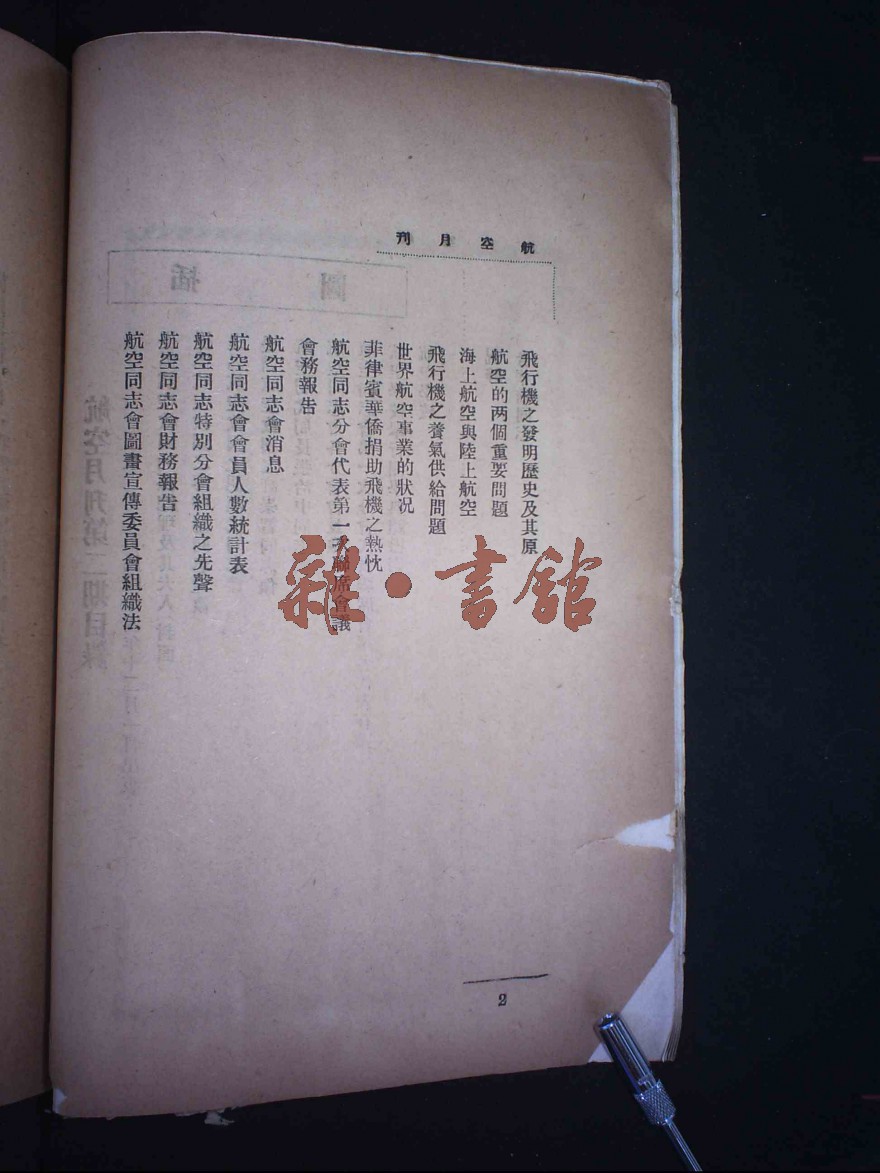 航空月刊
飛行機之發明歷史及其原
航空的两個重要問題
海上航空與陸上航空
飛行機之養氣供給問題
世界航空事業的狀况
菲律賓華僑捐助飛機之熱忱
航空同志分會代表第一次聯席會議
會務報告
航空同志會消息
航空同志會會員人數統計表
航空同志特別分會組織之先聲
航空同志會財務報告
航空同志會圖畫宣傳委員會組織法
2
雜·書館